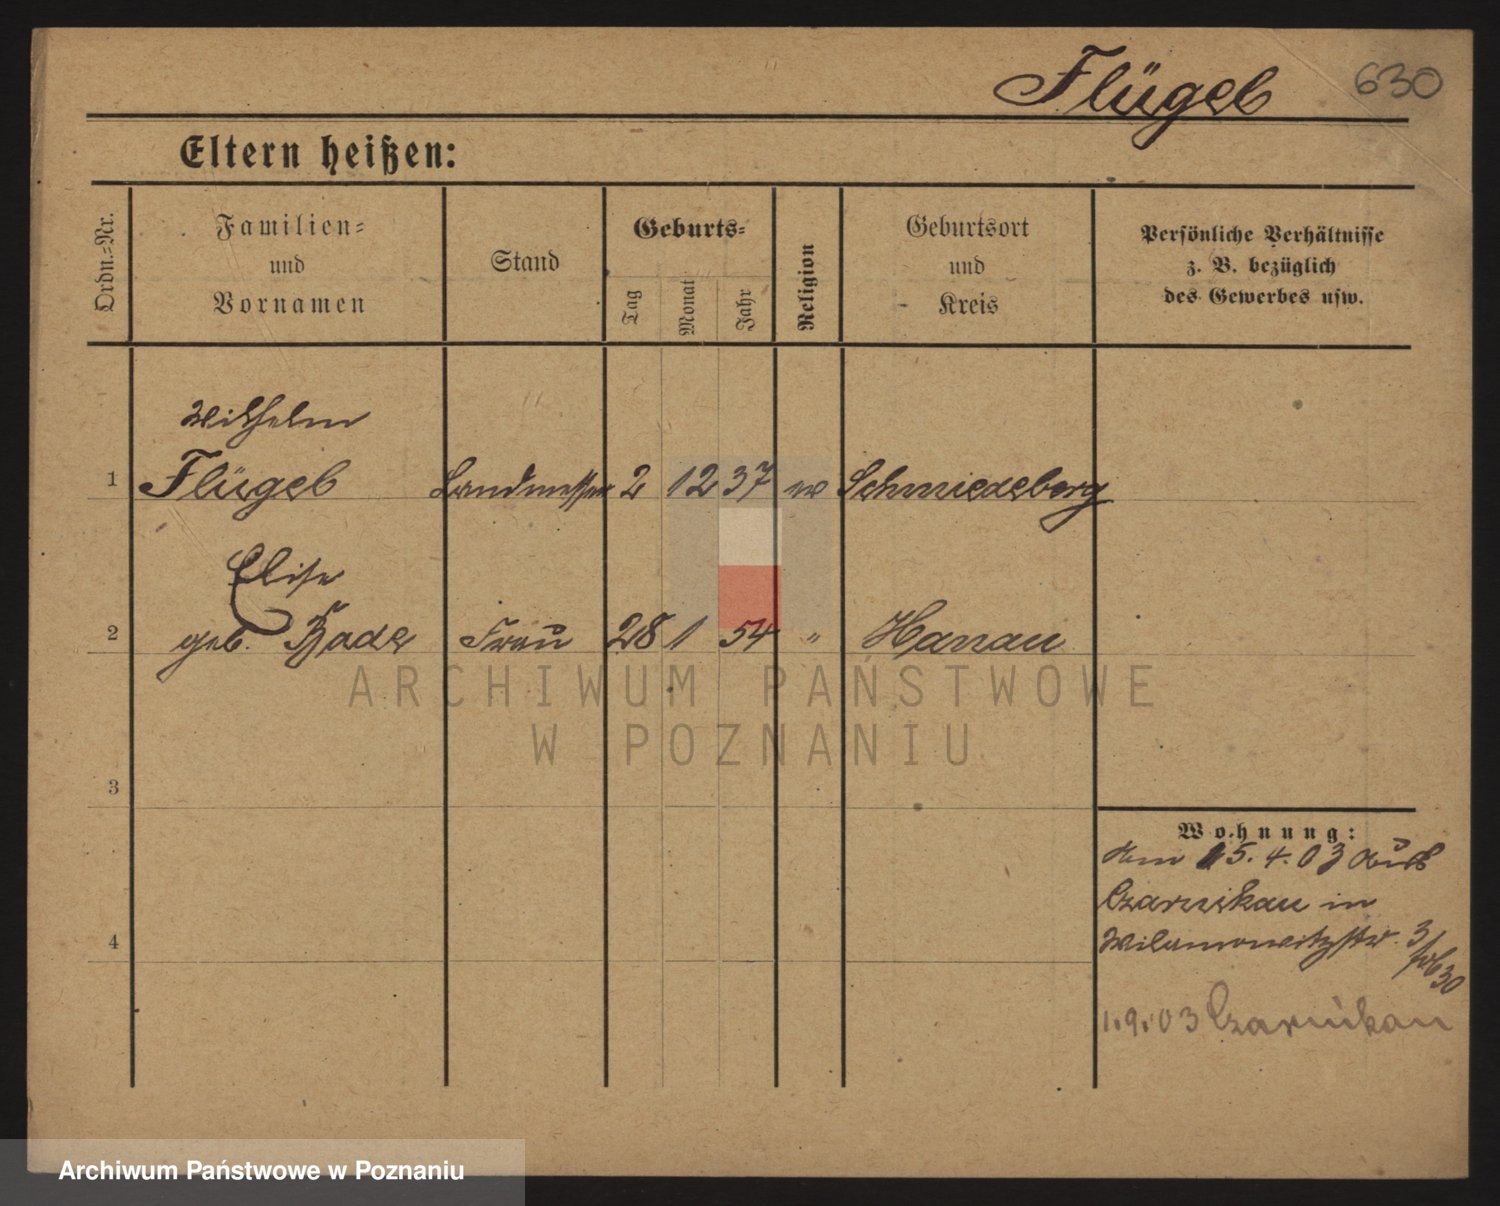 Flügel 630
Eltern heißen:
Ordn.-Nr.
Familien-
und
Vornamen
Stand
Geburts-
Tag
Monat
Jahr
Religion
Geburtsort
und
Kreis
Persönliche Verhältnisse
z. B. bezüglich
des Gewerbes usw.
Wilhelm
1 Flügel Landmesser 2 12 37 Schmiedeberg
Elise
2 geb. Frau 28 1 54 " Hanau
3
4
Wohnung:
15.4.03 aus
Czarnikau in
Wilamowitzstr. 3
30
1.9.03 Czarnikau
ARCHIWUM PAŃSTWOWE
W POZNANIU
Archiwum Państwowe w Poznaniu